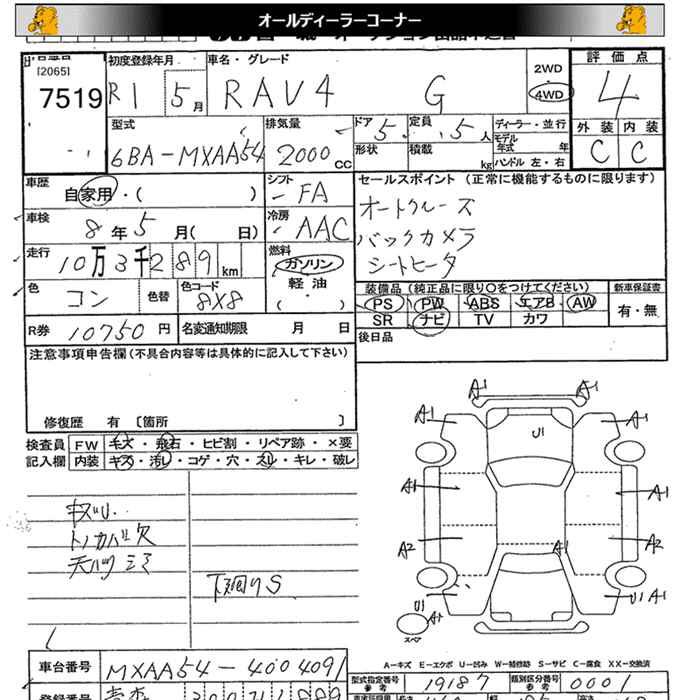 オールディーラーコーナー
[2065]
7519
初度登録年月
R1 5月
車名・グレード
RAV4 G
2WD
4WD
評価点
4
外装 内装
C C
型式
6BA-MXAA54
排気量
2000 CC
ドア 5
定員 5人
形状
積載 kg
ディーラー・並行
モデル年式 年
ハンドル 左・右
車歴
自家用・( )
シフト
FA
車検
8年5月( 日)
冷房
AAC
走行
10万3千289km
燃料
ガソリン
軽油
・
( )
色
コン
色替
色コード
8X8
R券 10750円
名変通知期限 月 日
セールスポイント (正常に機能するものに限ります)
オートクルーズ
バックカメラ
シートヒータ
装備品 (純正品に限り○をつけてください)
PS PW ABS エアB AW
SR ナビ TV カワ
新車保証書
有・無
後日品
注意事項申告欄(不具合内容等は具体的に記入して下さい)
修復歴 有 〔箇所 〕
検査員
記入欄
FW キズ・飛石・ヒビ割・リペア跡・×要
内装 キズ・汚レ・コゲ・穴・スレ・キレ・破レ
キズU.
トノカバー欠
天ハリシミ
下廻りS
A1 A1
A1 U1 A1
A1 A1
A2 A1 A2
U1 A1 U1 A1
スペア
A-キズ E-エクボ U-凹み W-補修跡 S-サビ C-腐食 XX-交換済
車台番号
MXAA54-4004091
型式指定番号
参考
19187
類別区分番号
参考
0001
登録番号